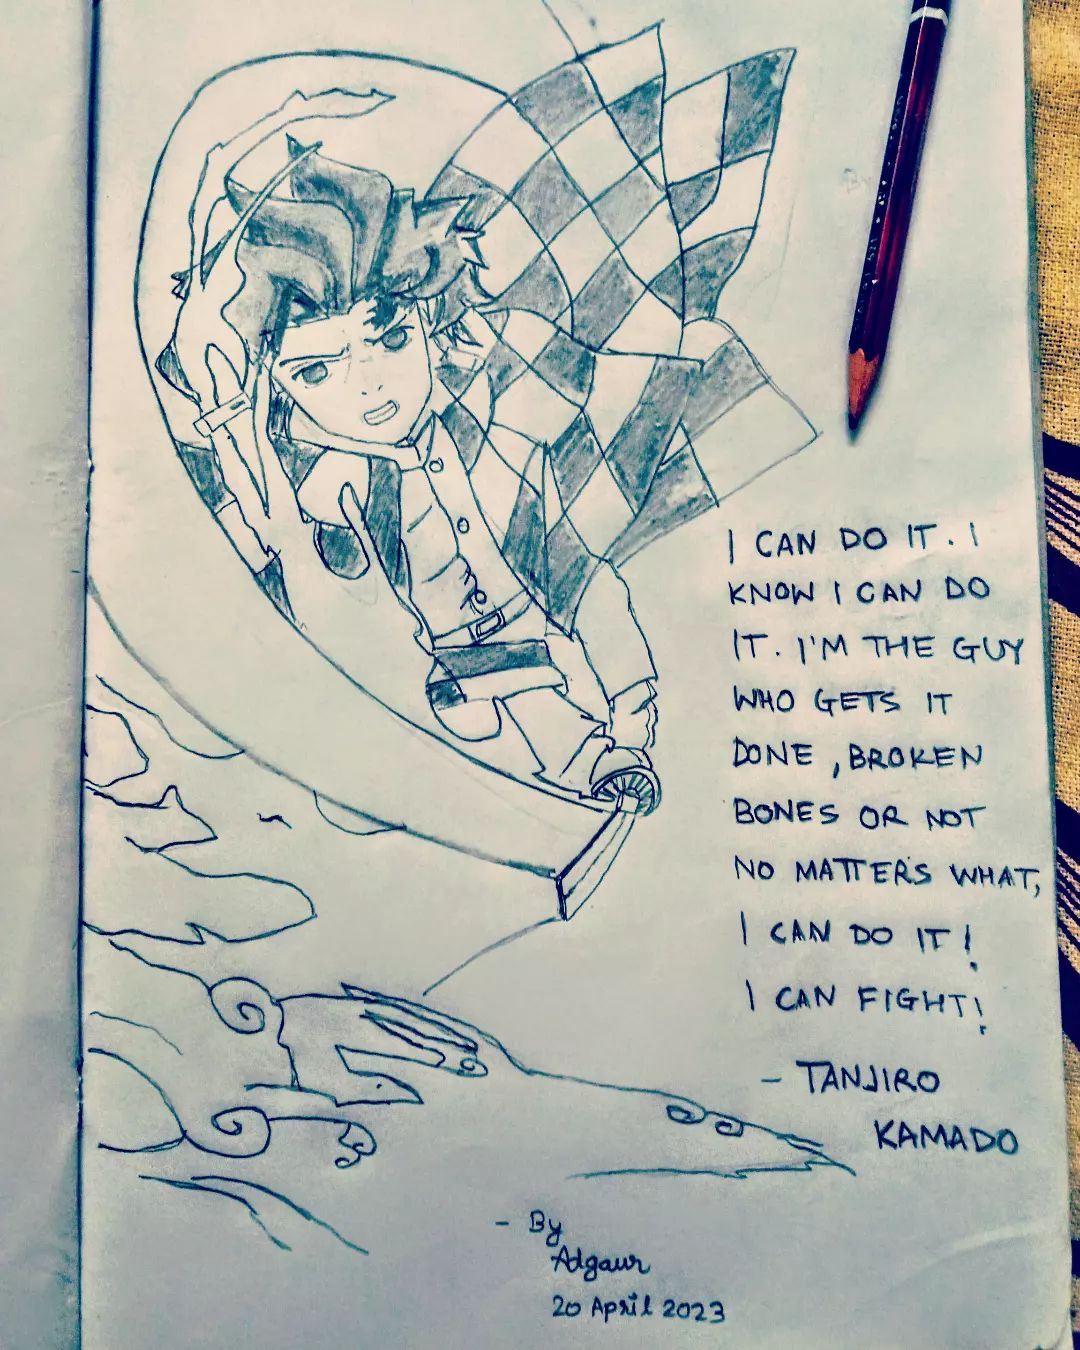 I CAN DO IT. I
KNOW I CAN DO
IT. I'M THE GUY
WHO GETS IT
DONE, BROKEN
BONES OR NOT
NO MATTER'S WHAT,
I CAN DO IT!
I CAN FIGHT!
- TANJIRO
KAMADO
- By
Adgaur
20 April 2023